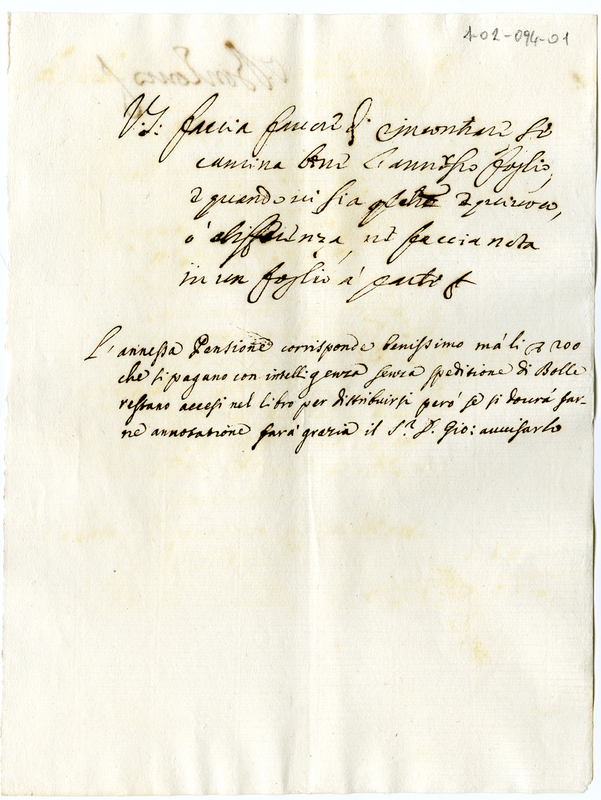 1-02-094-01
V.S. faccia favore di rincontrare se
camina bene l'annesso foglio,
e quando vi sia equivoco,
o' differenza, ne faccia nota
in un foglio a' parte
L'annessa Pensione corrisponde benissimo mà li 200
che si pagano con intelligenza senza speditione di Bolle
restano accesi nel libro per distribuirsi però se si dovrà far-
ne annotatione farà grazia il S.r D. Gio: avvisarlo